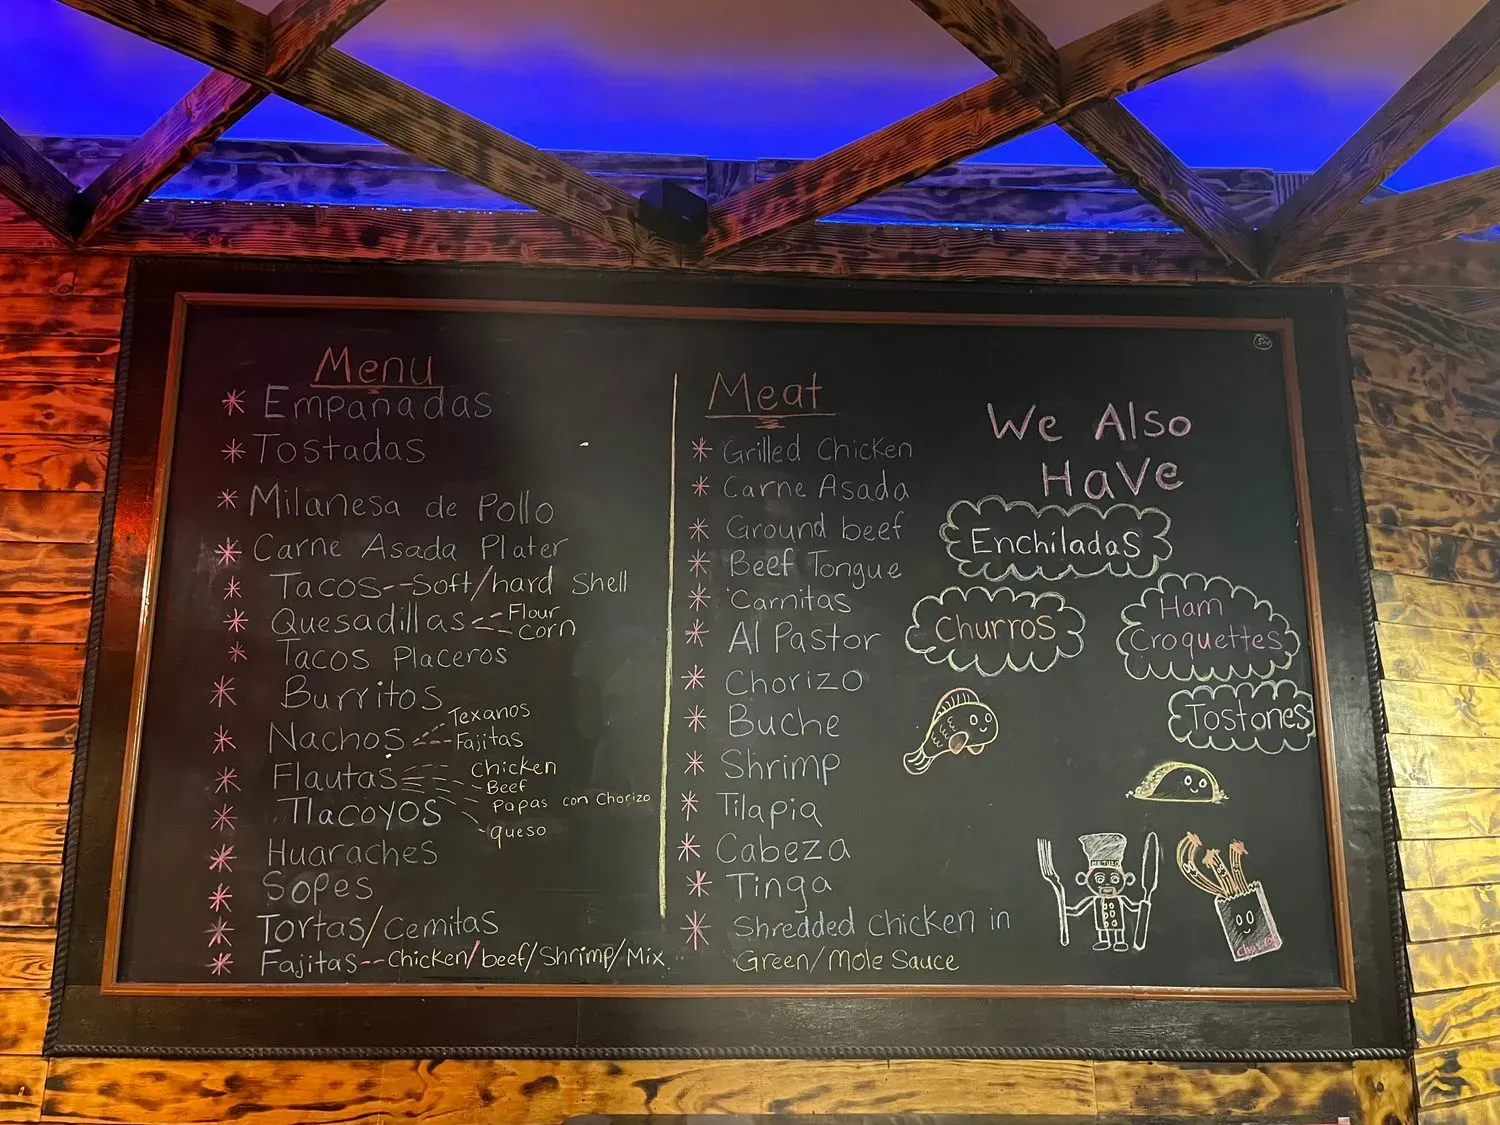 Menu
* Empanadas
* Tostadas
* Milanesa de Pollo
* Carne Asada Plater
* Tacos--Soft/hard Shell
* Quesadillas Flour
Corn
* Tacos Placeros
* Burritos
* Nachos Texanos
Fajitas
* Flautas Chicken
Beef
Papas con Chorizo
queso
* Tlacoyos
* Huaraches
* Sopes
* Tortas/Cemitas
* Fajitas--Chicken/beef/Shrimp/Mix
Meat
* Grilled Chicken
* Carne Asada
* Ground beef
* Beef Tongue
* Carnitas
* Al Pastor
* Chorizo
* Buche
* Shrimp
* Tilapia
* Cabeza
* Tinga
* Shredded Chicken in
Green/Mole Sauce
We Also
Have
Enchiladas
Churros
Ham
Croquettes
Tostones